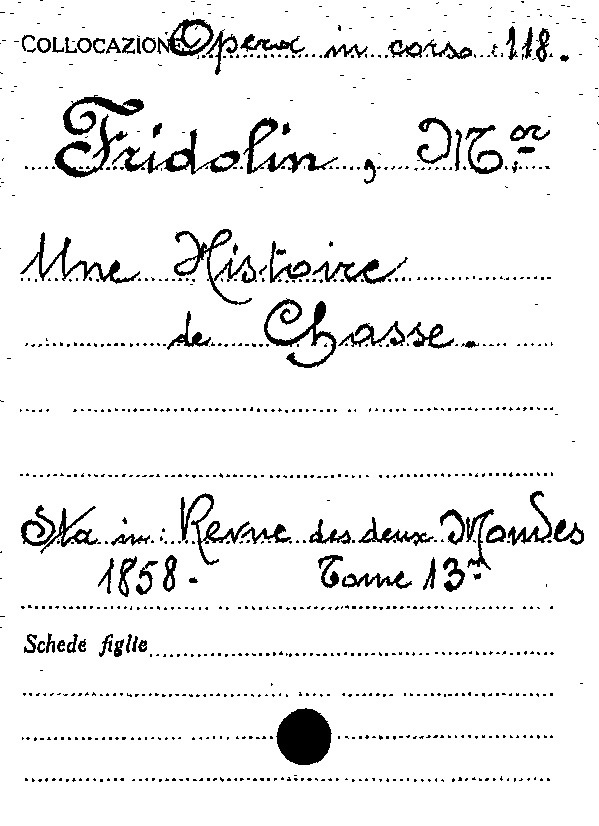 COLLOCAZIONE Opera in corso 118.
Fridolin, M.or
Une Histoire
de Chasse.
Sta in: Revue des deux Mondes
1858. Tome 13.me
Schede figlie